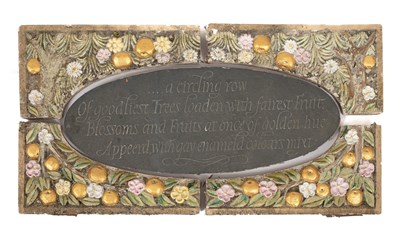 ....a circling row
Of goodliest Trees loaden with fairest Fruit
Blossoms and Fruits at once of golden hue
Appeerd with gay enameld colours mixt